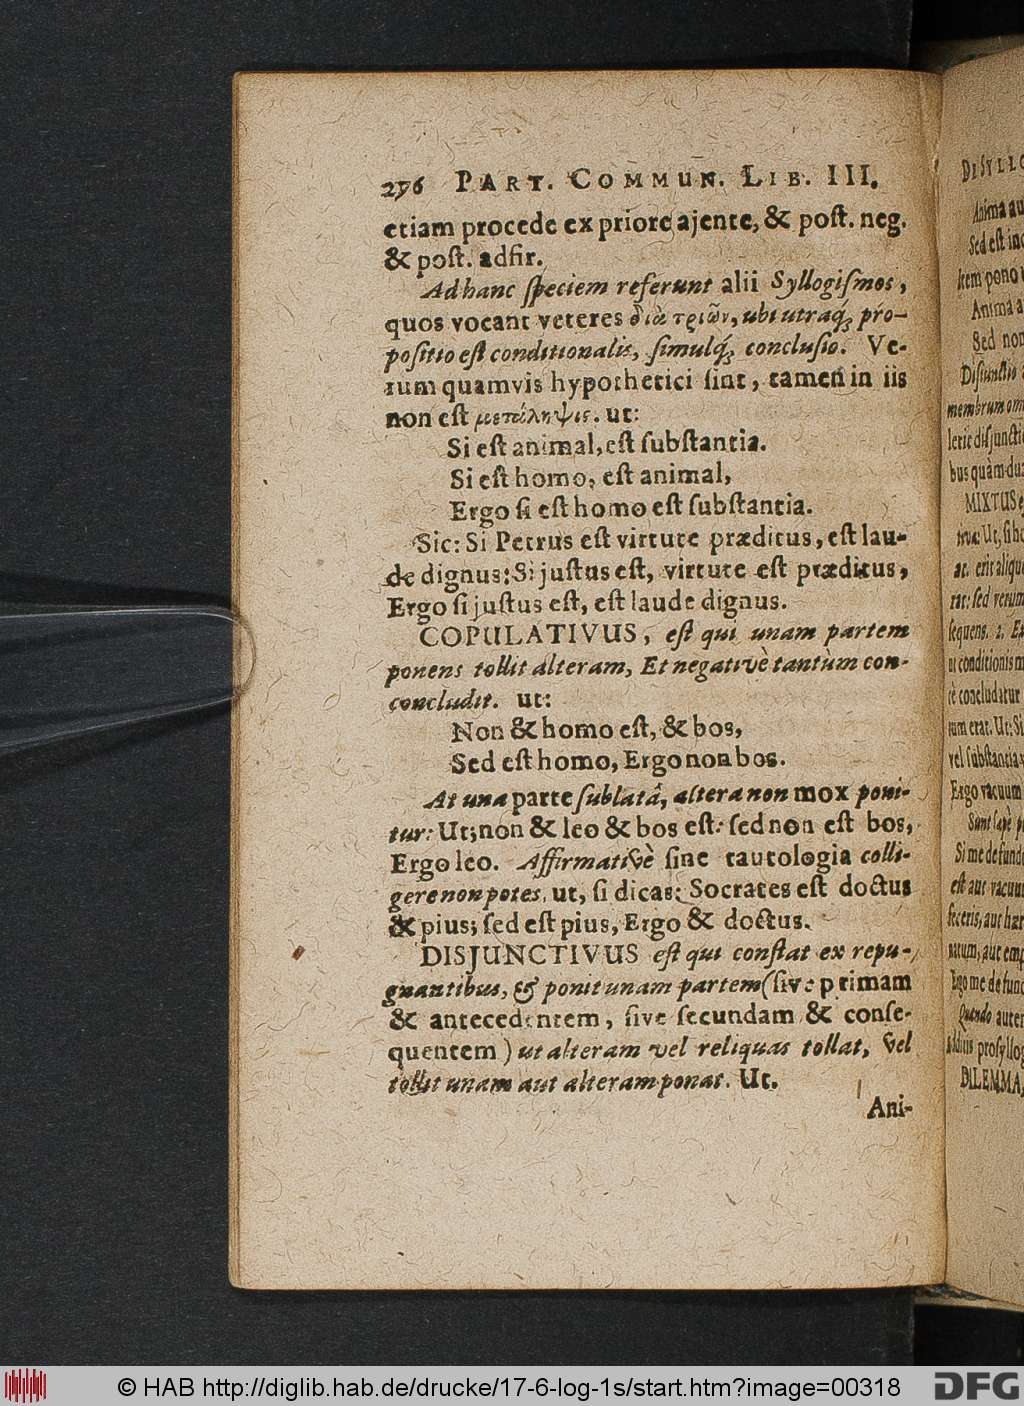 276 PART. COMMUN. LIB. III.
etiam procede ex priore ajente, & post. neg.
& post. adfir.
Ad hanc speciem referunt alii Syllogismos,
quos vocant veteres διὰ τριῶν, ubi utraq́; pro-
positio est conditionalis, simulq́; conclusio. Ve-
rum quamvis hypothetici sint, tamen in iis
non est μετάληψις. ut:
Si est animal, est substantia.
Si est homo, est animal,
Ergo si est homo est substantia.
Sic: Si Petrus est virtute præditus, est lau-
de dignus: Si justus est, virtute est præditus,
Ergo si justus est, est laude dignus.
COPULATIVUS, est qui unam partem
ponens tollit alteram, Et negativè tantùm con-
concludit. ut:
Non & homo est, & bos,
Sed est homo, Ergo non bos.
At una parte sublatâ, altera non mox poni-
tur: Ut; non & leo & bos est: sed non est bos,
Ergo leo. Affirmativè sine tautologia colli-
gere non potes. ut, si dicas: Socrates est doctus
& pius; sed est pius, Ergo & doctus.
DISJUNCTIVUS est qui constat ex repu-
gnantibus, & ponit unam partem (sive primam
& antecedentem, sive secundam & conse-
quentem) ut alteram vel reliquas tollat, vel
tollit unam aut alteram ponat. Ut.
Ani-
DE SYLLO
Anima au
Sed est inc
Item pono
Anima a
Sed non
Disjunctio
membrum om
bus quàm du
MIXTUS e
ac. erit aliqu
rat: sed verum
sequens. 2. E
ut conditionis m
cè concludatur
tum erat. Ut: Si
vel substantia
Ergo vacuum
Sunt sæpè p
Si me defund
est aut vacuum
feceris, aut hær
natum, aut emp
Ergo me defunc
Quando autem
additus prosyllog
DILEMMA,
© HAB http://diglib.hab.de/drucke/17-6-log-1s/start.htm?image=00318
DFG